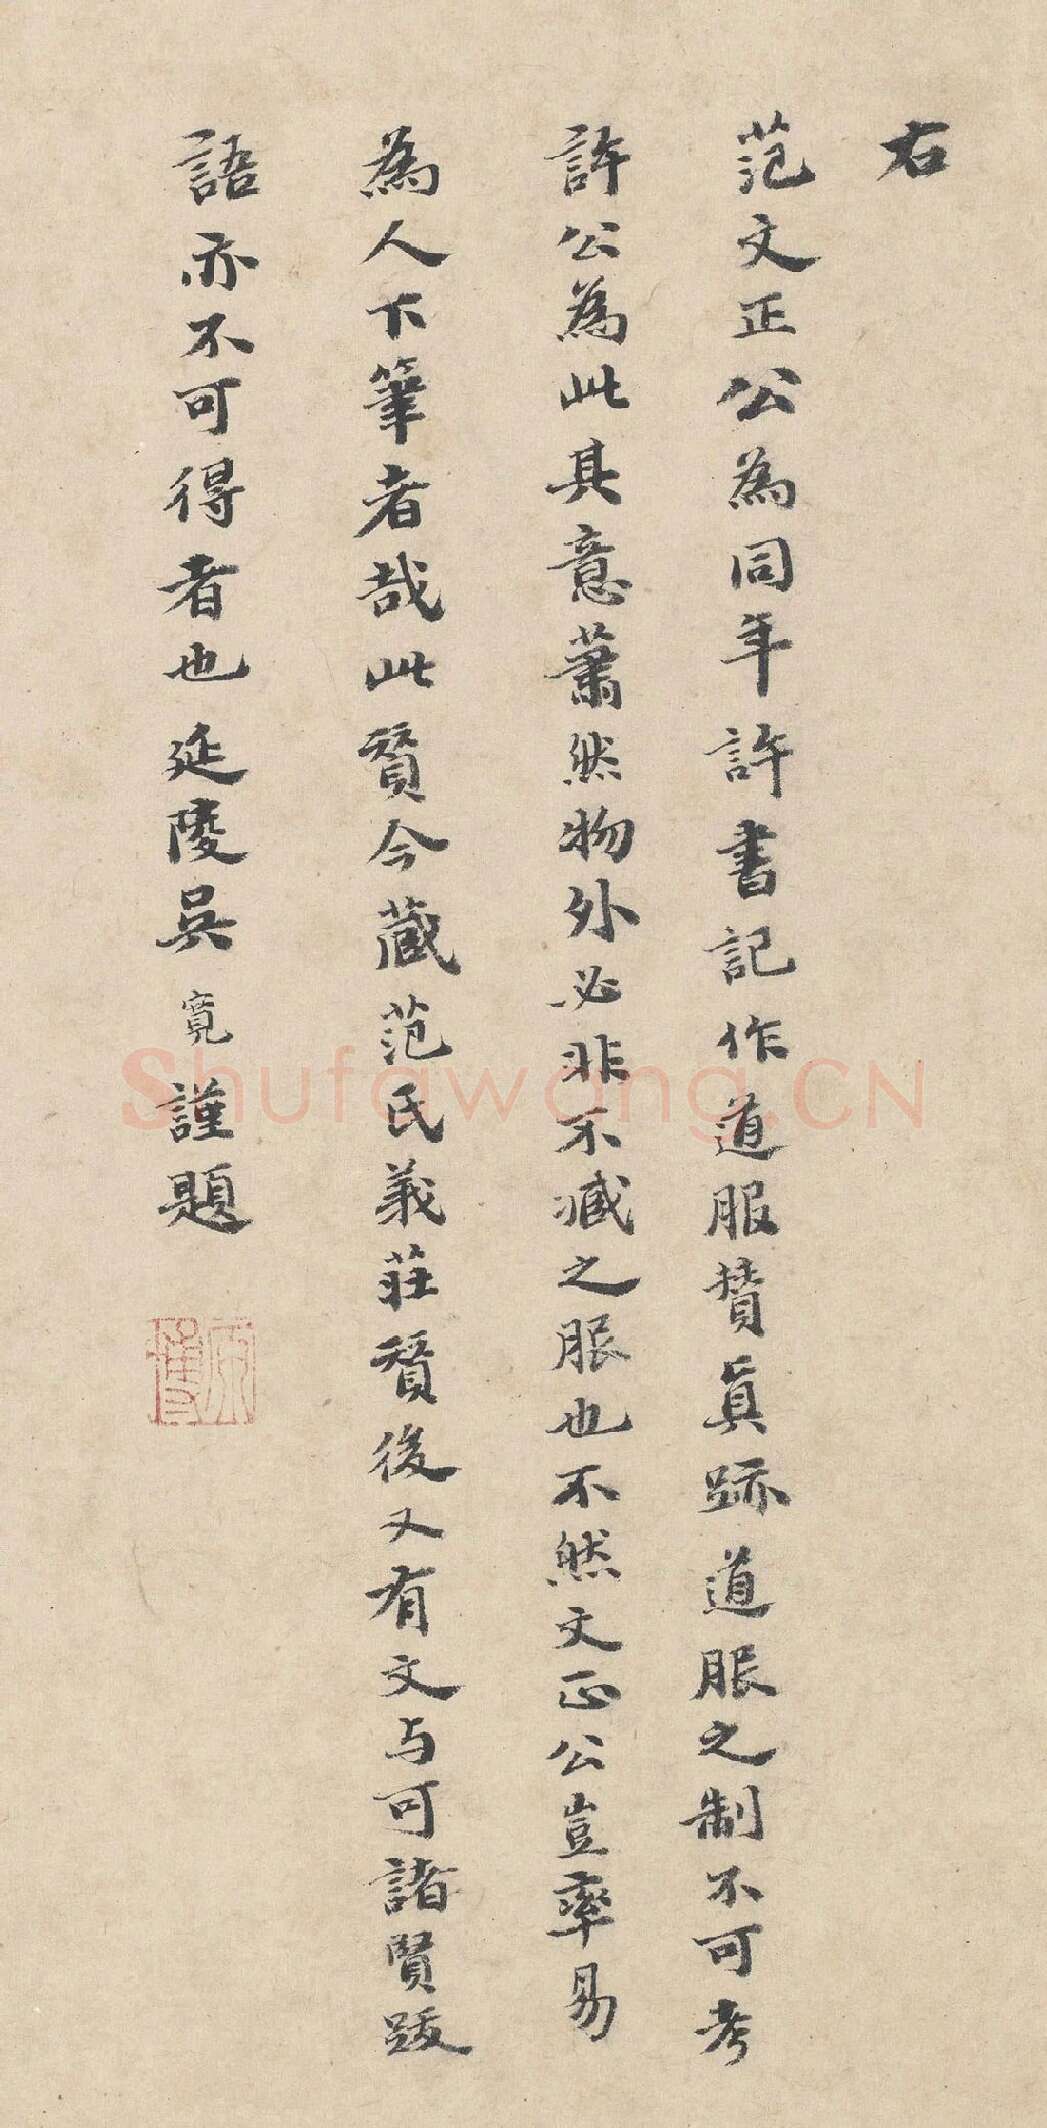 右
范文正公為同年許書記作道服賛真跡道服之制不可考
許公為此其意蕭然物外必非不臧之服也不然文正公豈率易
為人下筆者哉此賛今蔵范氏義莊賛後又有文与可諸賢跋
語亦不可得者也延陵吳寬謹題
原博
Shufawang.CN